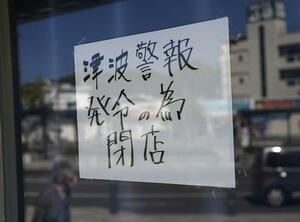 津波警報
発令の為
閉店